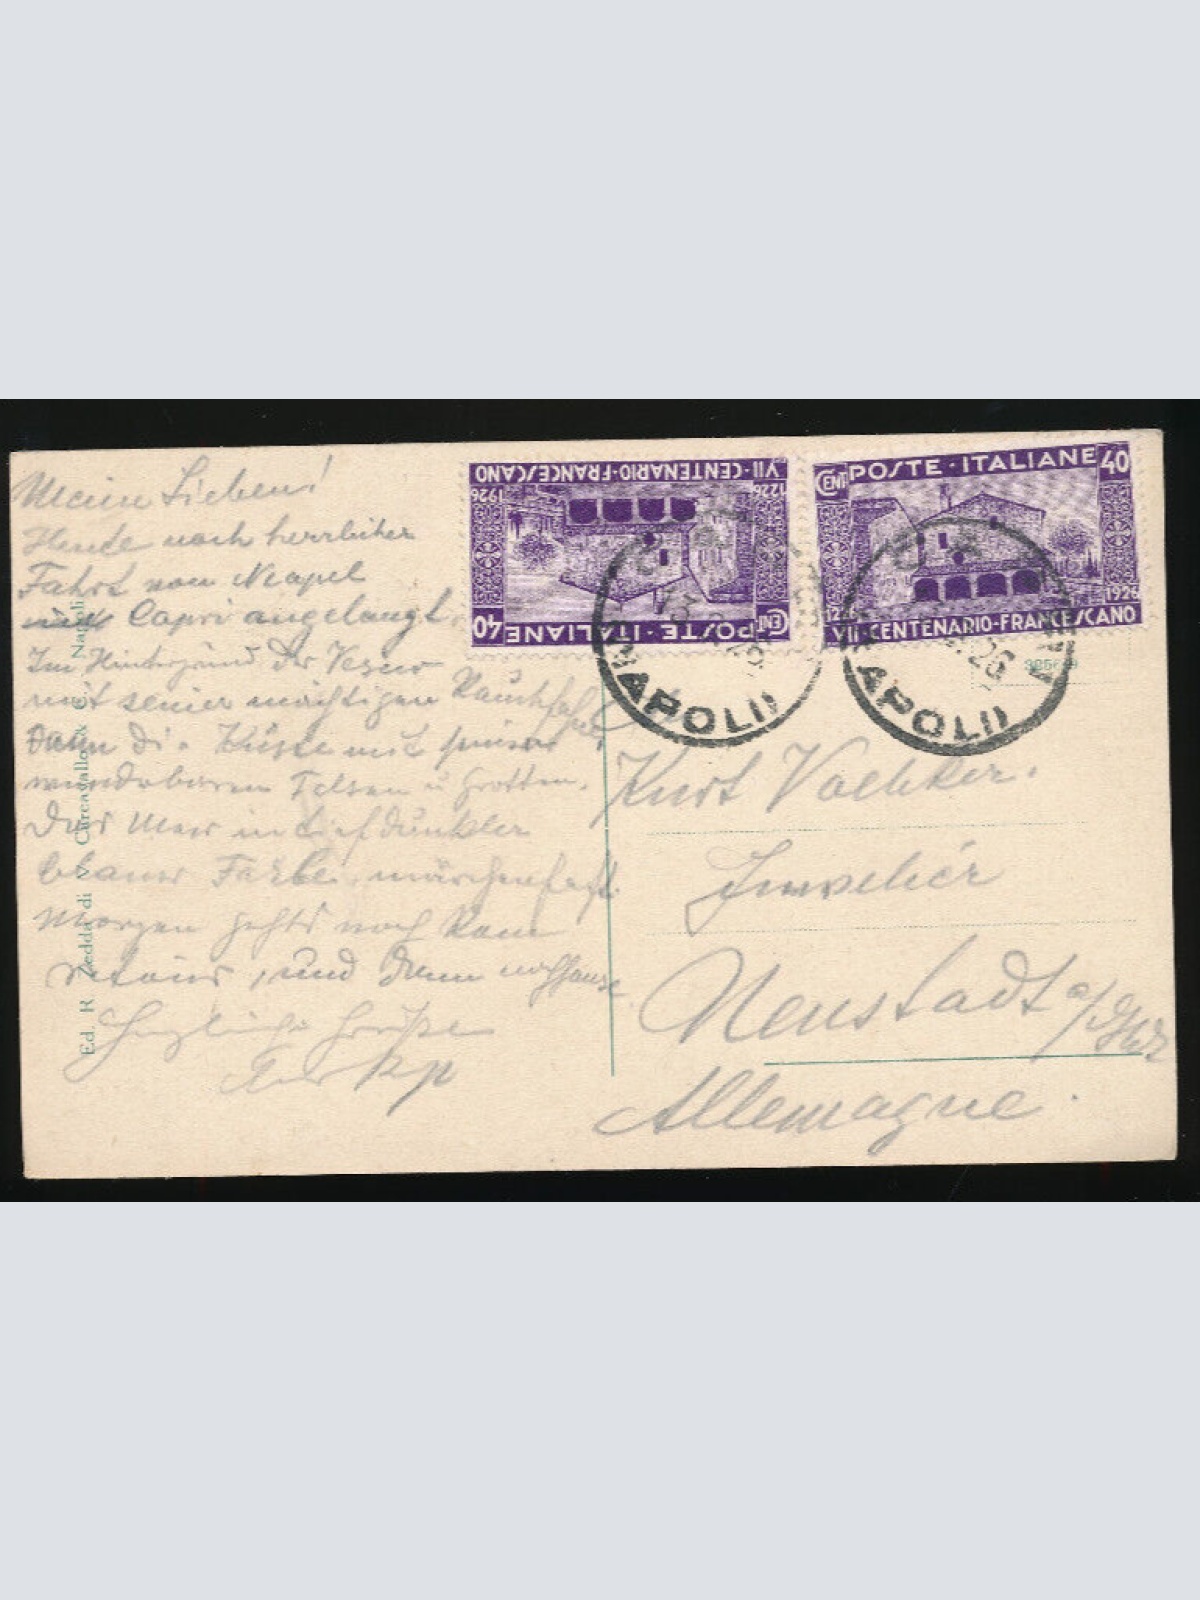 Meine Lieben!
Heute nach herrlicher
Fahrt von Neapel
Capri angelangt.
Im Hintergrund der Vesuv
mit seiner mächtigen Rauchfahne
dann die Küste mit seinen
wunderbaren Felsen u Grotten.
Das Meer in tiefdunkler
blauer Farbe, märchenhaft.
Morgen gehts nach Rom
retour, und dann nachhause
Herzliche Grüße
Ed. R. Zedda di V. Carcavallo & C. Napoli
VII·CENTENARIO·FRANCESCANO
1226 1926
CENT POSTE·ITALIANE 40
CENT POSTE·ITALIANE 40
1926
VII·CENTENARIO·FRANCESCANO
NAPOLI
NAPOLI
26
Kurt
Juwelier
Neustadt
Allemagne.